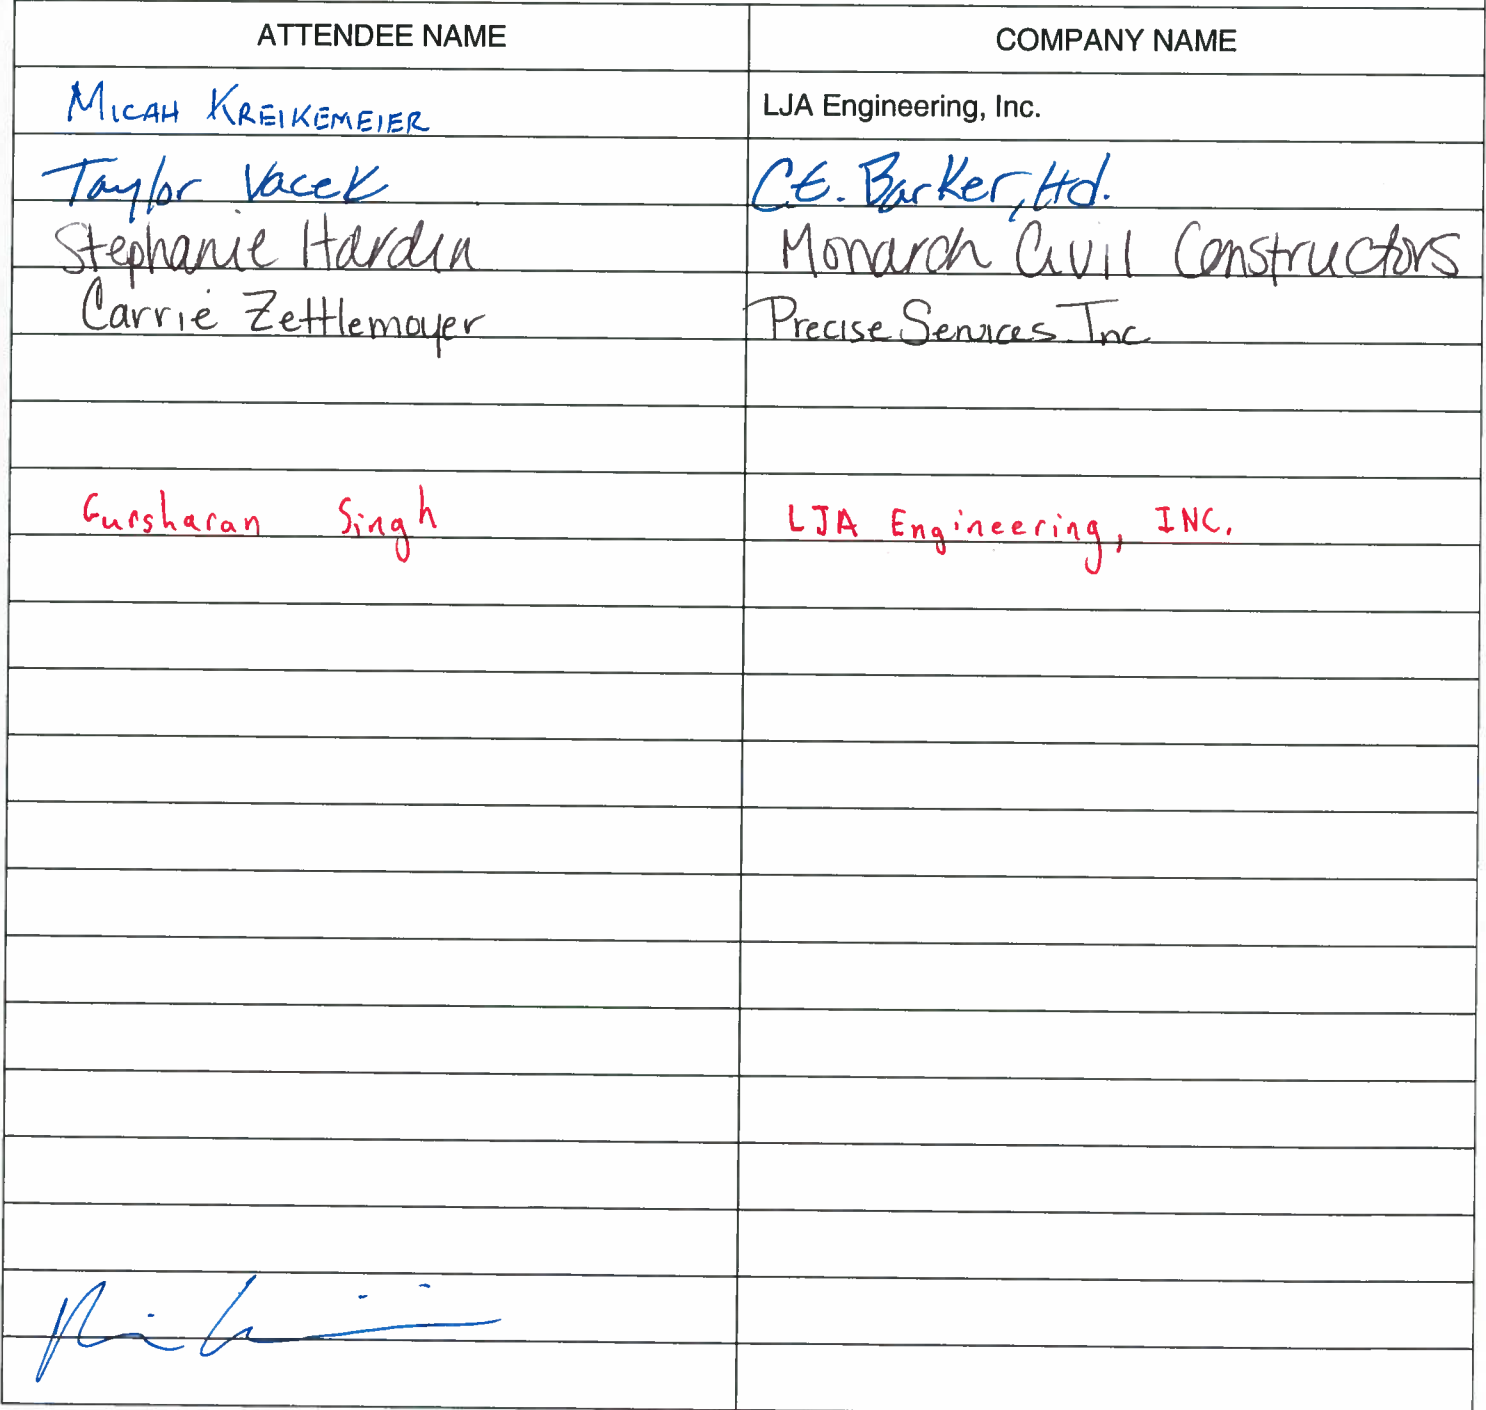 ATTENDEE NAME COMPANY NAME
MICAH KREIKEMEIER LJA Engineering, Inc.
Taylor Vacek C.E. Barker, Ltd.
Stephanie Hardin Monarch Civil Constructors
Carrie Zettlemoyer Precise Services Inc
Gursharan Singh LJA Engineering, INC.